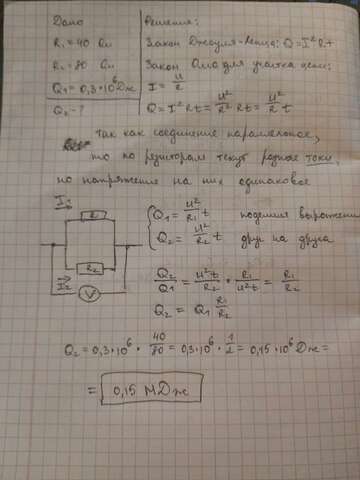 Дано
R₁ = 40 Ом
R₂ = 80 Ом
Q₁ = 0,3·10⁶ Дж
Q₂ - ?
Решение:
Закон Джоуля-Ленца: Q = I² R t
Закон Ома для участка цепи:
I = U/R
Q = I² R t = U²/R² R t = U²/R t
Так как соединение параллельное,
то по резисторам текут разные токи,
но напряжение на них одинаковое
I₁
R₁
R₂
I₂
V
Q₁ = U²/R₁ t поделим выражения
Q₂ = U²/R₂ t друг на друга
Q₂/Q₁ = U²t/R₂ · R₁/U²t = R₁/R₂
Q₂ = Q₁ R₁/R₂
Q₂ = 0,3·10⁶ · 40/80 = 0,3·10⁶ · 1/2 = 0,15·10⁶ Дж =
= 0,15 МДж